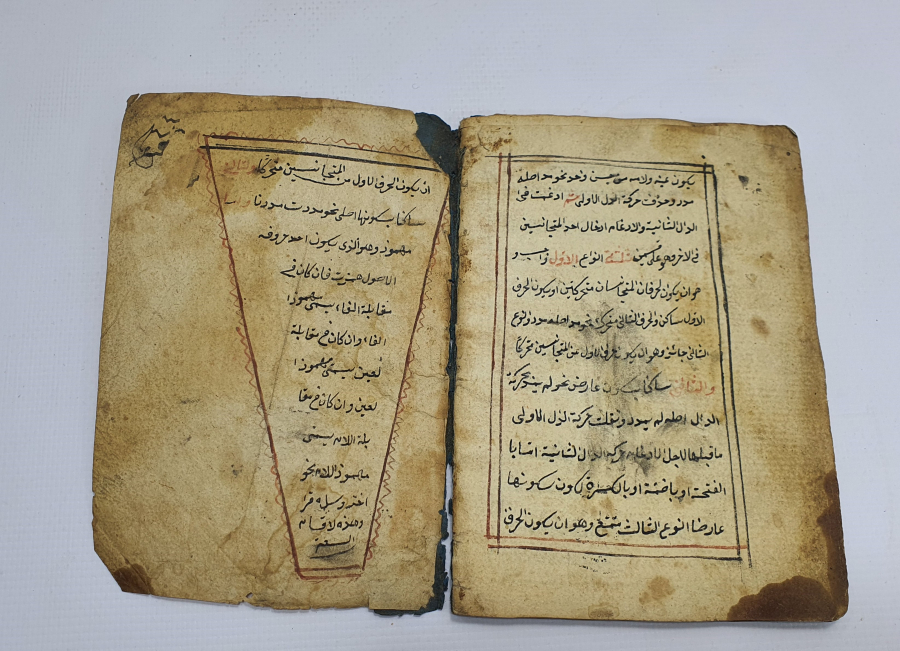 يكون عينه ولامه من جنس واحد نحو مد اصله
مدد وحذفت حركة الدال الاولى ثم ادغمت في
الدال الثانية والادغام ادخال احد المتجانسين
في الاخر وهو على ثلثة انواع الاول واجب و
هو ان يكون الحرفان المتجانسان متحركين او يكون الحرف
الاول ساكن والحرف الثاني متحركا نحو مد اصله مدد والنوع
الثاني جائز وهو ان يكون الحرف الاول من المتجانسين متحركا
والثاني ساكنا بسكون عارض نحو لم يمد بحركة
الدال اصله لم يمدد ونقلت حركة الدال الاولى
ما قبلها لاجل الادغام حركة الدال الثانية اما با
الفتحة او باضمة او بالكسرة يكون سكونها
عارضا النوع الثالث ممتنع وهو ان يكون الحرف
ان يكون الحرف الاول من المتجانسين متحركا والثاني
ساكنا بسكونها اصلي نحو مددت مددنا
مهموز وهو الذي يكون احد حروفه
الاصول همزت فان كان في
مقابلة الفاء يسمى مهموز ا
الفاء وان كان في مقابلة
لعين يسمى مهموز ا
لعين وان كان في مقا
بلة اللام يسمى
مهموز اللام نحو
اخذ وسأل وقرأ
وهذه الاقسام